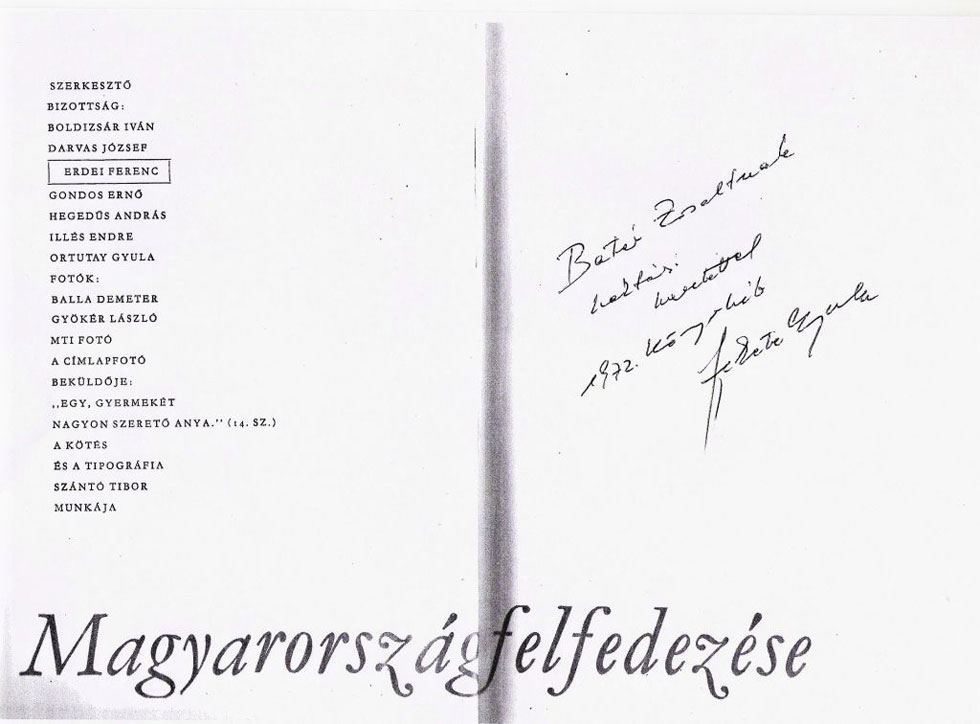 SZERKESZTŐ
BIZOTTSÁG:
BOLDIZSÁR IVÁN
DARVAS JÓZSEF
ERDEI FERENC
GONDOS ERNŐ
HEGEDŰS ANDRÁS
ILLÉS ENDRE
ORTUTAY GYULA
FOTÓK:
BALLA DEMETER
GYÖKÉR LÁSZLÓ
MTI FOTÓ
A CÍMLAPFOTÓ
BEKÜLDŐJE:
„EGY, GYERMEKÉT
NAGYON SZERETŐ ANYA.” (14. SZ.)
A KÖTÉS
ÉS A TIPOGRÁFIA
SZÁNTÓ TIBOR
MUNKÁJA
Zsoltnak
szeretettel
1972.
Fekete Gyula
Magyarország felfedezése